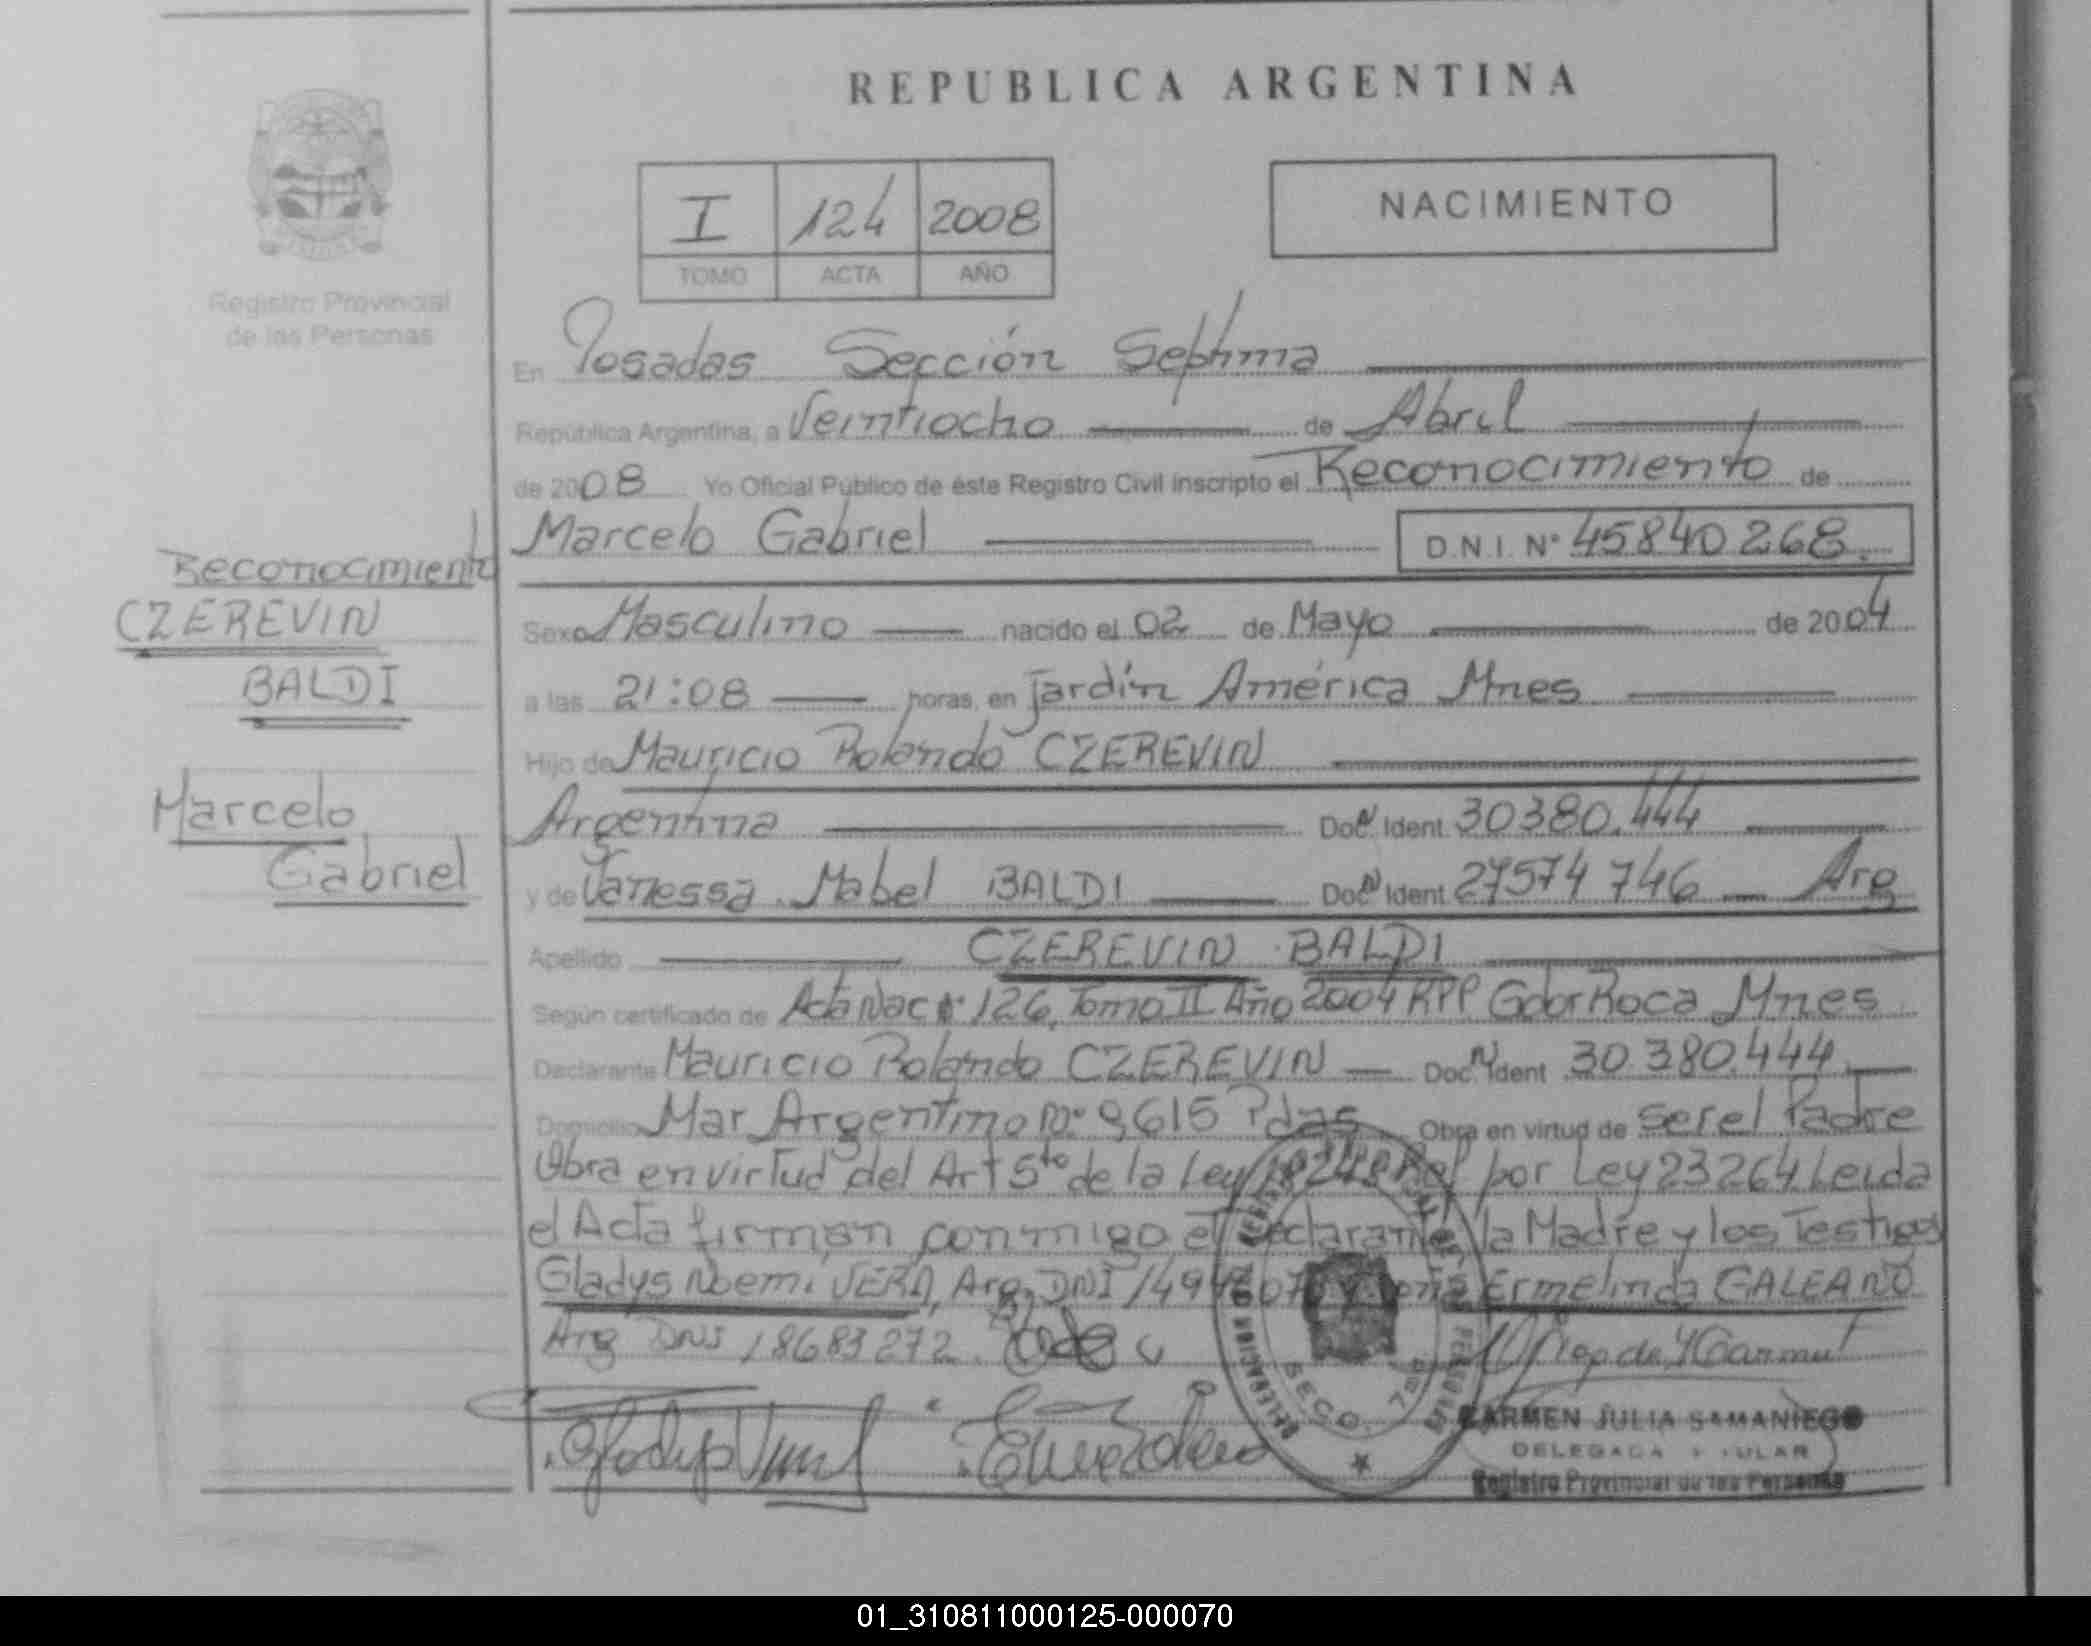 REPUBLICA ARGENTINA
I 124 2008
TOMO ACTA AÑO
NACIMIENTO
Registro Provincial
de las Personas
En Posadas Sección Septima
República Argentina, a Veintiocho de Abril
de 2008 Yo Oficial Público de éste Registro Civil inscripto el Reconocimiento de
Marcelo Gabriel D.N.I. Nº 45840268.
Reconocimiento
CZEREVIN
BALDI
Marcelo
Gabriel
Sexo Masculino nacido el 02 de Mayo de 2004
a las 21:08 horas, en Jardín América Mnes
Hijo de Mauricio Rolando CZEREVIN
Argentina Doc Ident 30380.444
y de Vanessa Mabel BALDI Doc Ident 27574746 Arg
Apellido CZEREVIN BALDI
Según certificado de Acta Nac 126, Tomo II Año 2004 RPP Gdor Roca Mnes
Declarante Mauricio Rolando CZEREVIN Doc Ident 30.380.444
Domicilio Mar Argentino Nº 9615 Pdas Obra en virtud de ser el Padre
Obra en virtud del Art 5to de la Ley por Ley 23264 Leida
el Acta firman conmigo el Declarante, la Madre y los Testigos
Gladys Noemi VERA, Arg. DNI Ermelinda GALEANO
Arg DNI 18683272.
SECC. 7ma
CARMEN JULIA SAMANIEGO
DELEGADA TITULAR
Registro Provincial de las Personas
01_310811000125-000070